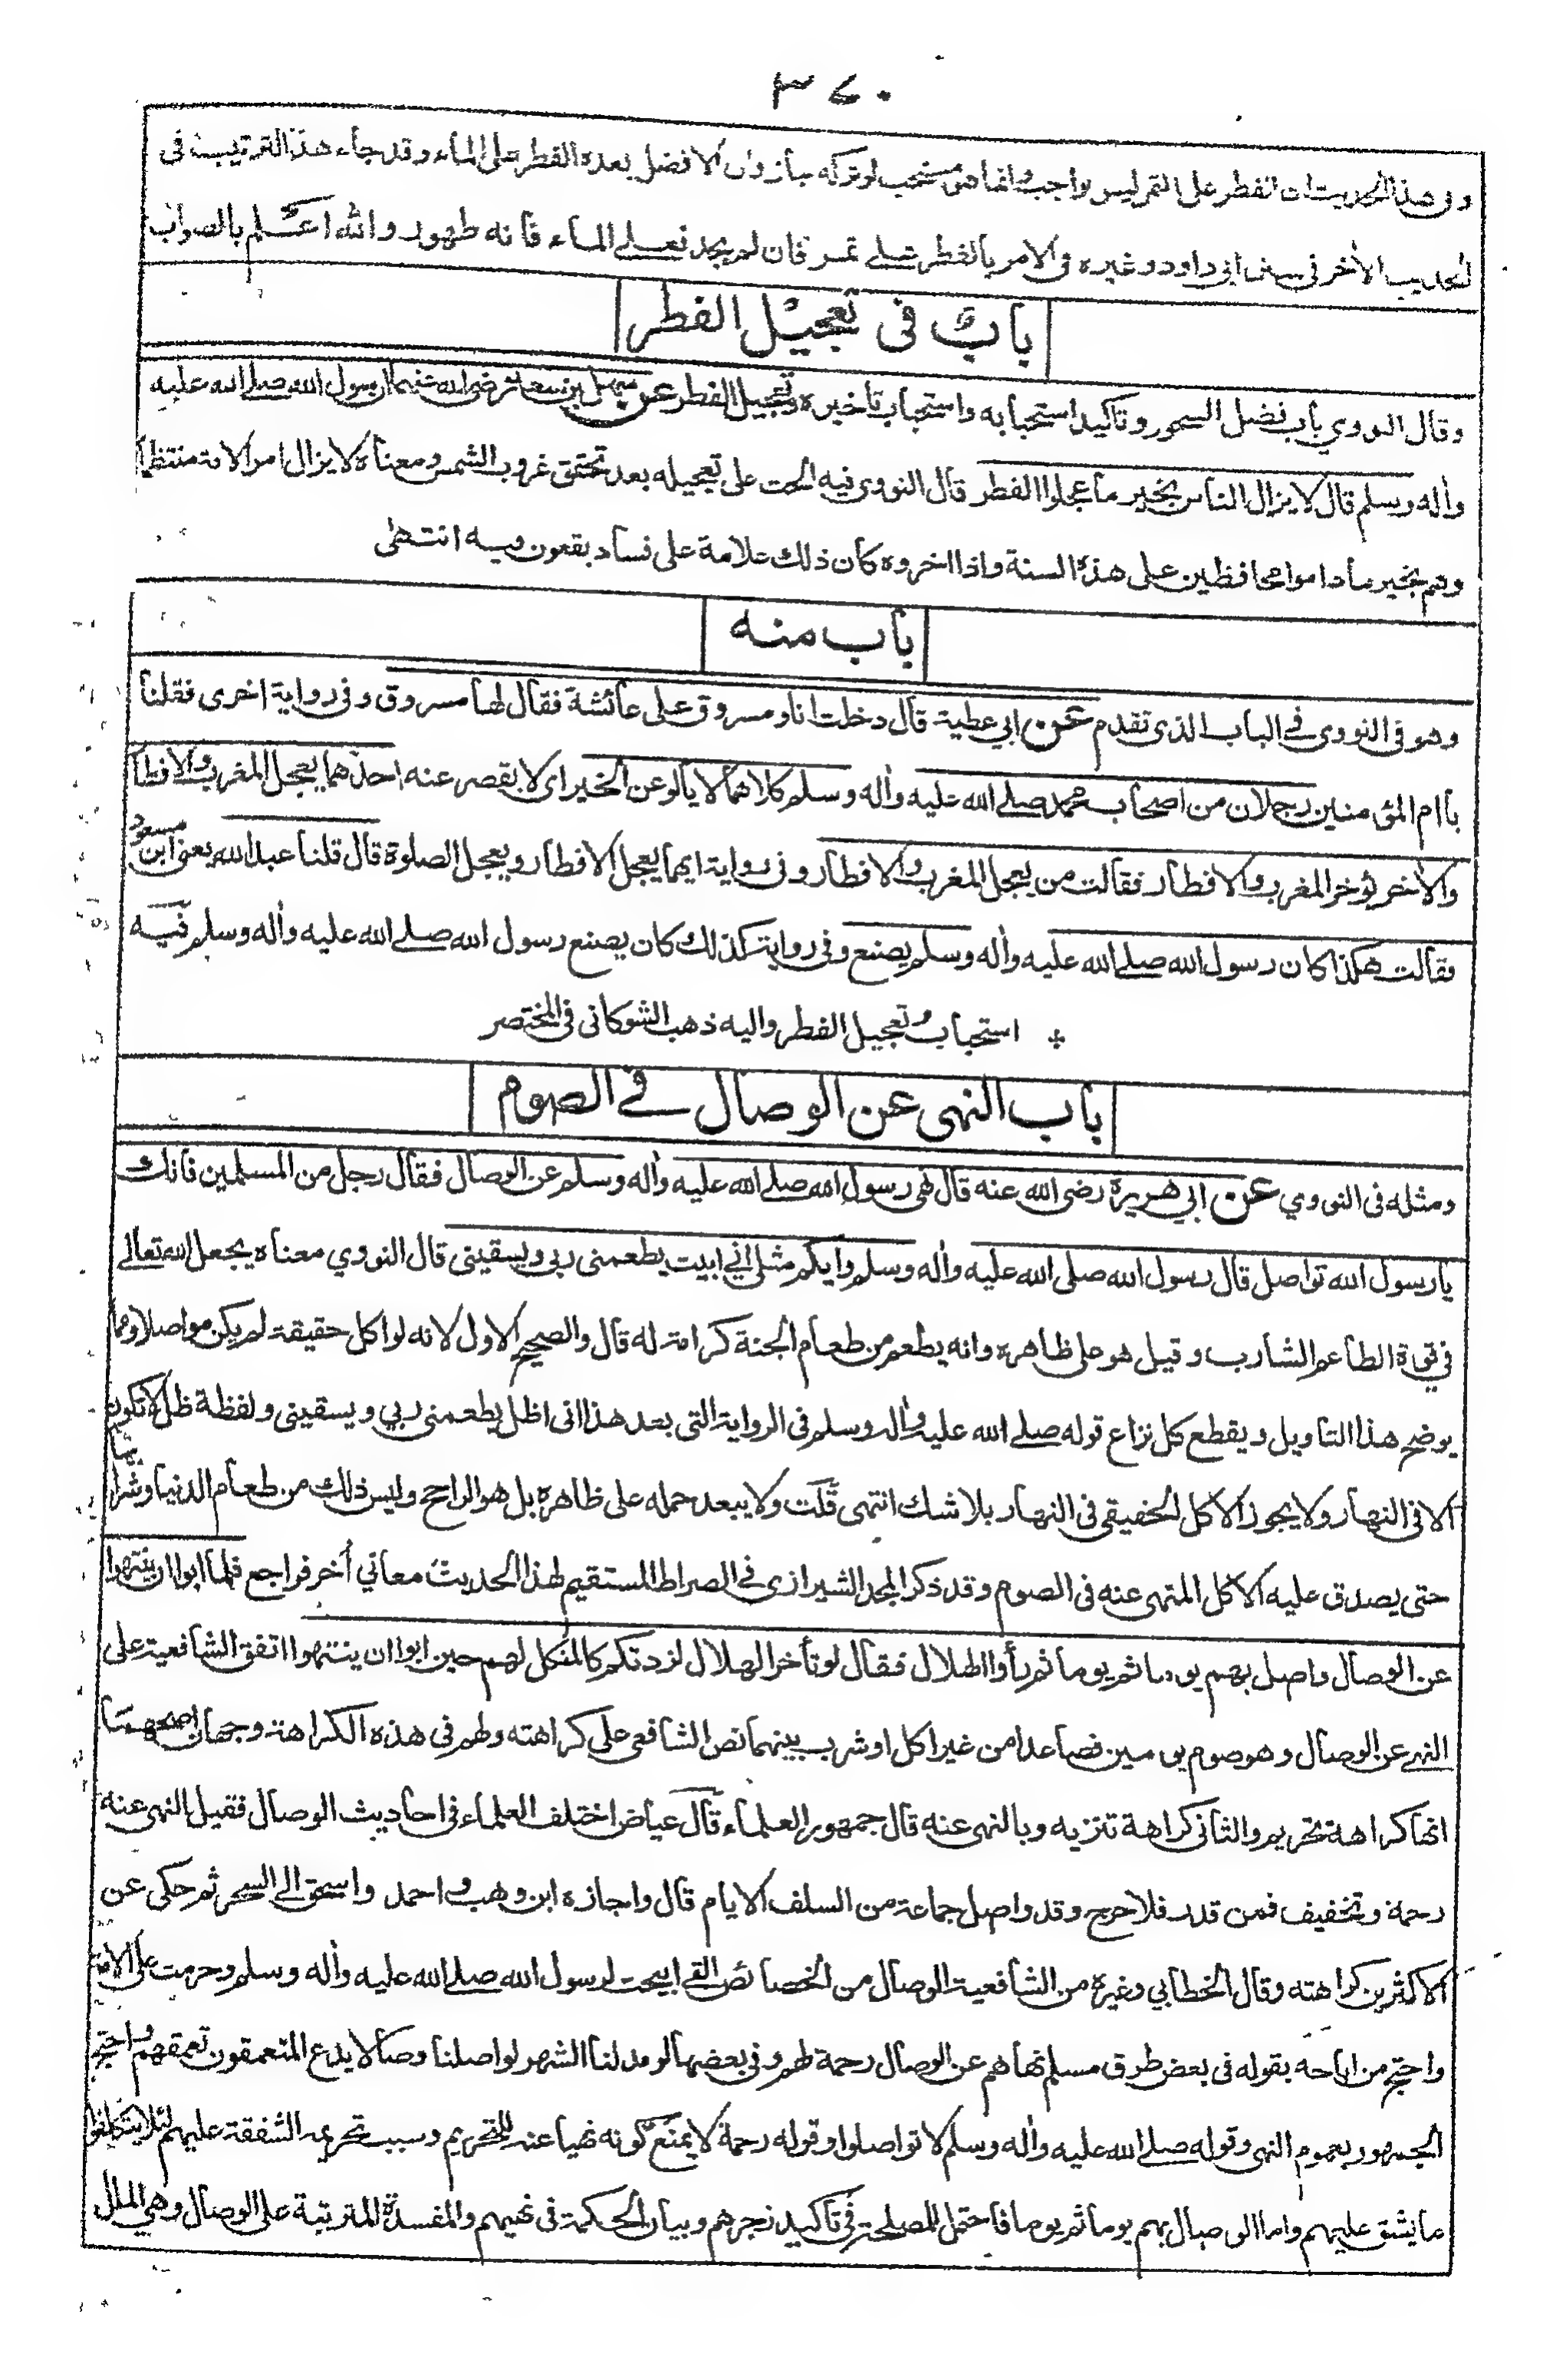 ٣٧٠
وفى هذا الحديث ان الفطر على التمر ليس بواجب وانما هو مستحب لو تركه جاز وان الافضل بعده الفطر على الماء وقد جاء هذا الترتيب فى
الحديث الاخر فى سنن ابى داود وغيره فى الامر بالفطر على تمر فان لم يجد فعلى الماء فانه طهور والله اعلم بالصواب
باب فى تعجيل الفطر
وقال النووي باب فضل السحور وتاكيد استحبابه واستحباب تاخيره وتعجيل الفطر عن سهل بن سعد رضى الله عنهما ان رسول الله صلى الله عليه
واٰله وسلم قال لا يزال الناس بخير ما عجلوا الفطر قال النووى فيه الحث على تعجيله بعد تحقق غروب الشمس ومعناه لا يزال امر الامة منتظما
وهم بخير ما داموا محافظين على هذه السنة واذا اخروه كان ذلك علامة على فساد يقعون فيه انتهى
باب منه
وهو فى النووى فى الباب الذى تقدم عن ابي عطية قال دخلت انا ومسروق على عائشة فقال لها مسروق وفى رواية اخرى فقلنا
يا ام المؤمنين رجلان من اصحاب محمد صلى الله عليه واٰله وسلم كلاهما لا يألو عن الخير اى لا يقصر عنه احدهما يعجل المغرب والافطار
والاخر يؤخر المغرب والافطار فقالت من يعجل المغرب والافطار وفى رواية ايهما يعجل الافطار ويعجل الصلوة قال قلنا عبد الله يعنى ابن مسعود
فقالت هكذا كان رسول الله صلى الله عليه واٰله وسلم يصنع وفى رواية كذلك كان يصنع رسول الله صلى الله عليه واٰله وسلم فيه
استحباب تعجيل الفطر واليه ذهب الشوكانى فى المختصر
باب النهى عن الوصال فى الصوم
ومثله فى النووي عن ابي هريرة رضى الله عنه قال نهى رسول الله صلى الله عليه واٰله وسلم عن الوصال فقال رجل من المسلمين فانك
يا رسول الله تواصل قال رسول الله صلى الله عليه واٰله وسلم وايكم مثلى انى ابيت يطعمنى ربى ويسقينى قال النووي معناه يجعل الله تعالى
فى قوة الطاعم الشارب وقيل هو على ظاهره وانه يطعم من طعام الجنة كرامة له قال والصحيح الاول لانه لو اكل حقيقة لم يكن مواصلا ومما
يوضح هذا التاويل ويقطع كل نزاع قوله صلى الله عليه واٰله وسلم فى الرواية التى بعد هذا انى اظل يطعمنى ربي ويسقينى ولفظة ظل لا تكون
الا فى النهار ولا يجوز الاكل الحقيقى فى النهار بلا شك انتهى قلت ولا يبعد حمله على ظاهره بل هو الراجح وليس ذلك من طعام الدنيا وشرابها
حتى يصدق عليه الاكل المنهى عنه فى الصوم وقد ذكر المجد الشيرازى فى الصراط المستقيم لهذا الحديث معاني أخر فراجع فلما ابوا ان ينتهوا
عن الوصال واصل بهم يوما ثم يوما ثم رأوا الهلال فقال لو تأخر الهلال لزدتكم كالمنكل لهم حين ابوا ان ينتهوا اتفق الشافعية على
النهى عن الوصال وهو صوم يومين فصاعدا من غير اكل او شرب بينهما نص الشافعى على كراهته ولهم فى هذه الكراهة وجهان اصحهما
انها كراهة تحريم والثانى كراهة تنزيه وبالنهى عنه قال جمهور العلماء قال عياض اختلف العلماء فى احاديث الوصال فقيل النهى عنه
رحمة وتخفيف فمن قدر فلا حرج وقد واصل جماعة من السلف الايام قال واجازه ابن وهب واحمد واسحق الى السحر ثم حكى عن
الاكثرين كراهته وقال الخطابي وغيره من الشافعية الوصال من الخصائص التى ابيحت لرسول الله صلى الله عليه واٰله وسلم وحرمت على الامة
واحتج من اباحه بقوله فى بعض طرق مسلم نهاهم عن الوصال رحمة لهم وفى بعضها لو مد لنا الشهر لواصلنا وصالا يدع المتعمقون تعمقهم واحتج
الجمهور بعموم النهى وقوله صلى الله عليه واٰله وسلم لا تواصلوا وقوله رحمة لا يمنع كونه نهيا عنه للتحريم وسبب تحريمه الشفقة عليهم لئلا يتكلفوا
ما يشق عليهم واما الوصال بهم يوما ثم يوما فاحتمل للمصلحة فى تاكيد زجرهم وبيان الحكمة فى نهيهم والمفسدة المترتبة على الوصال وهى الملل